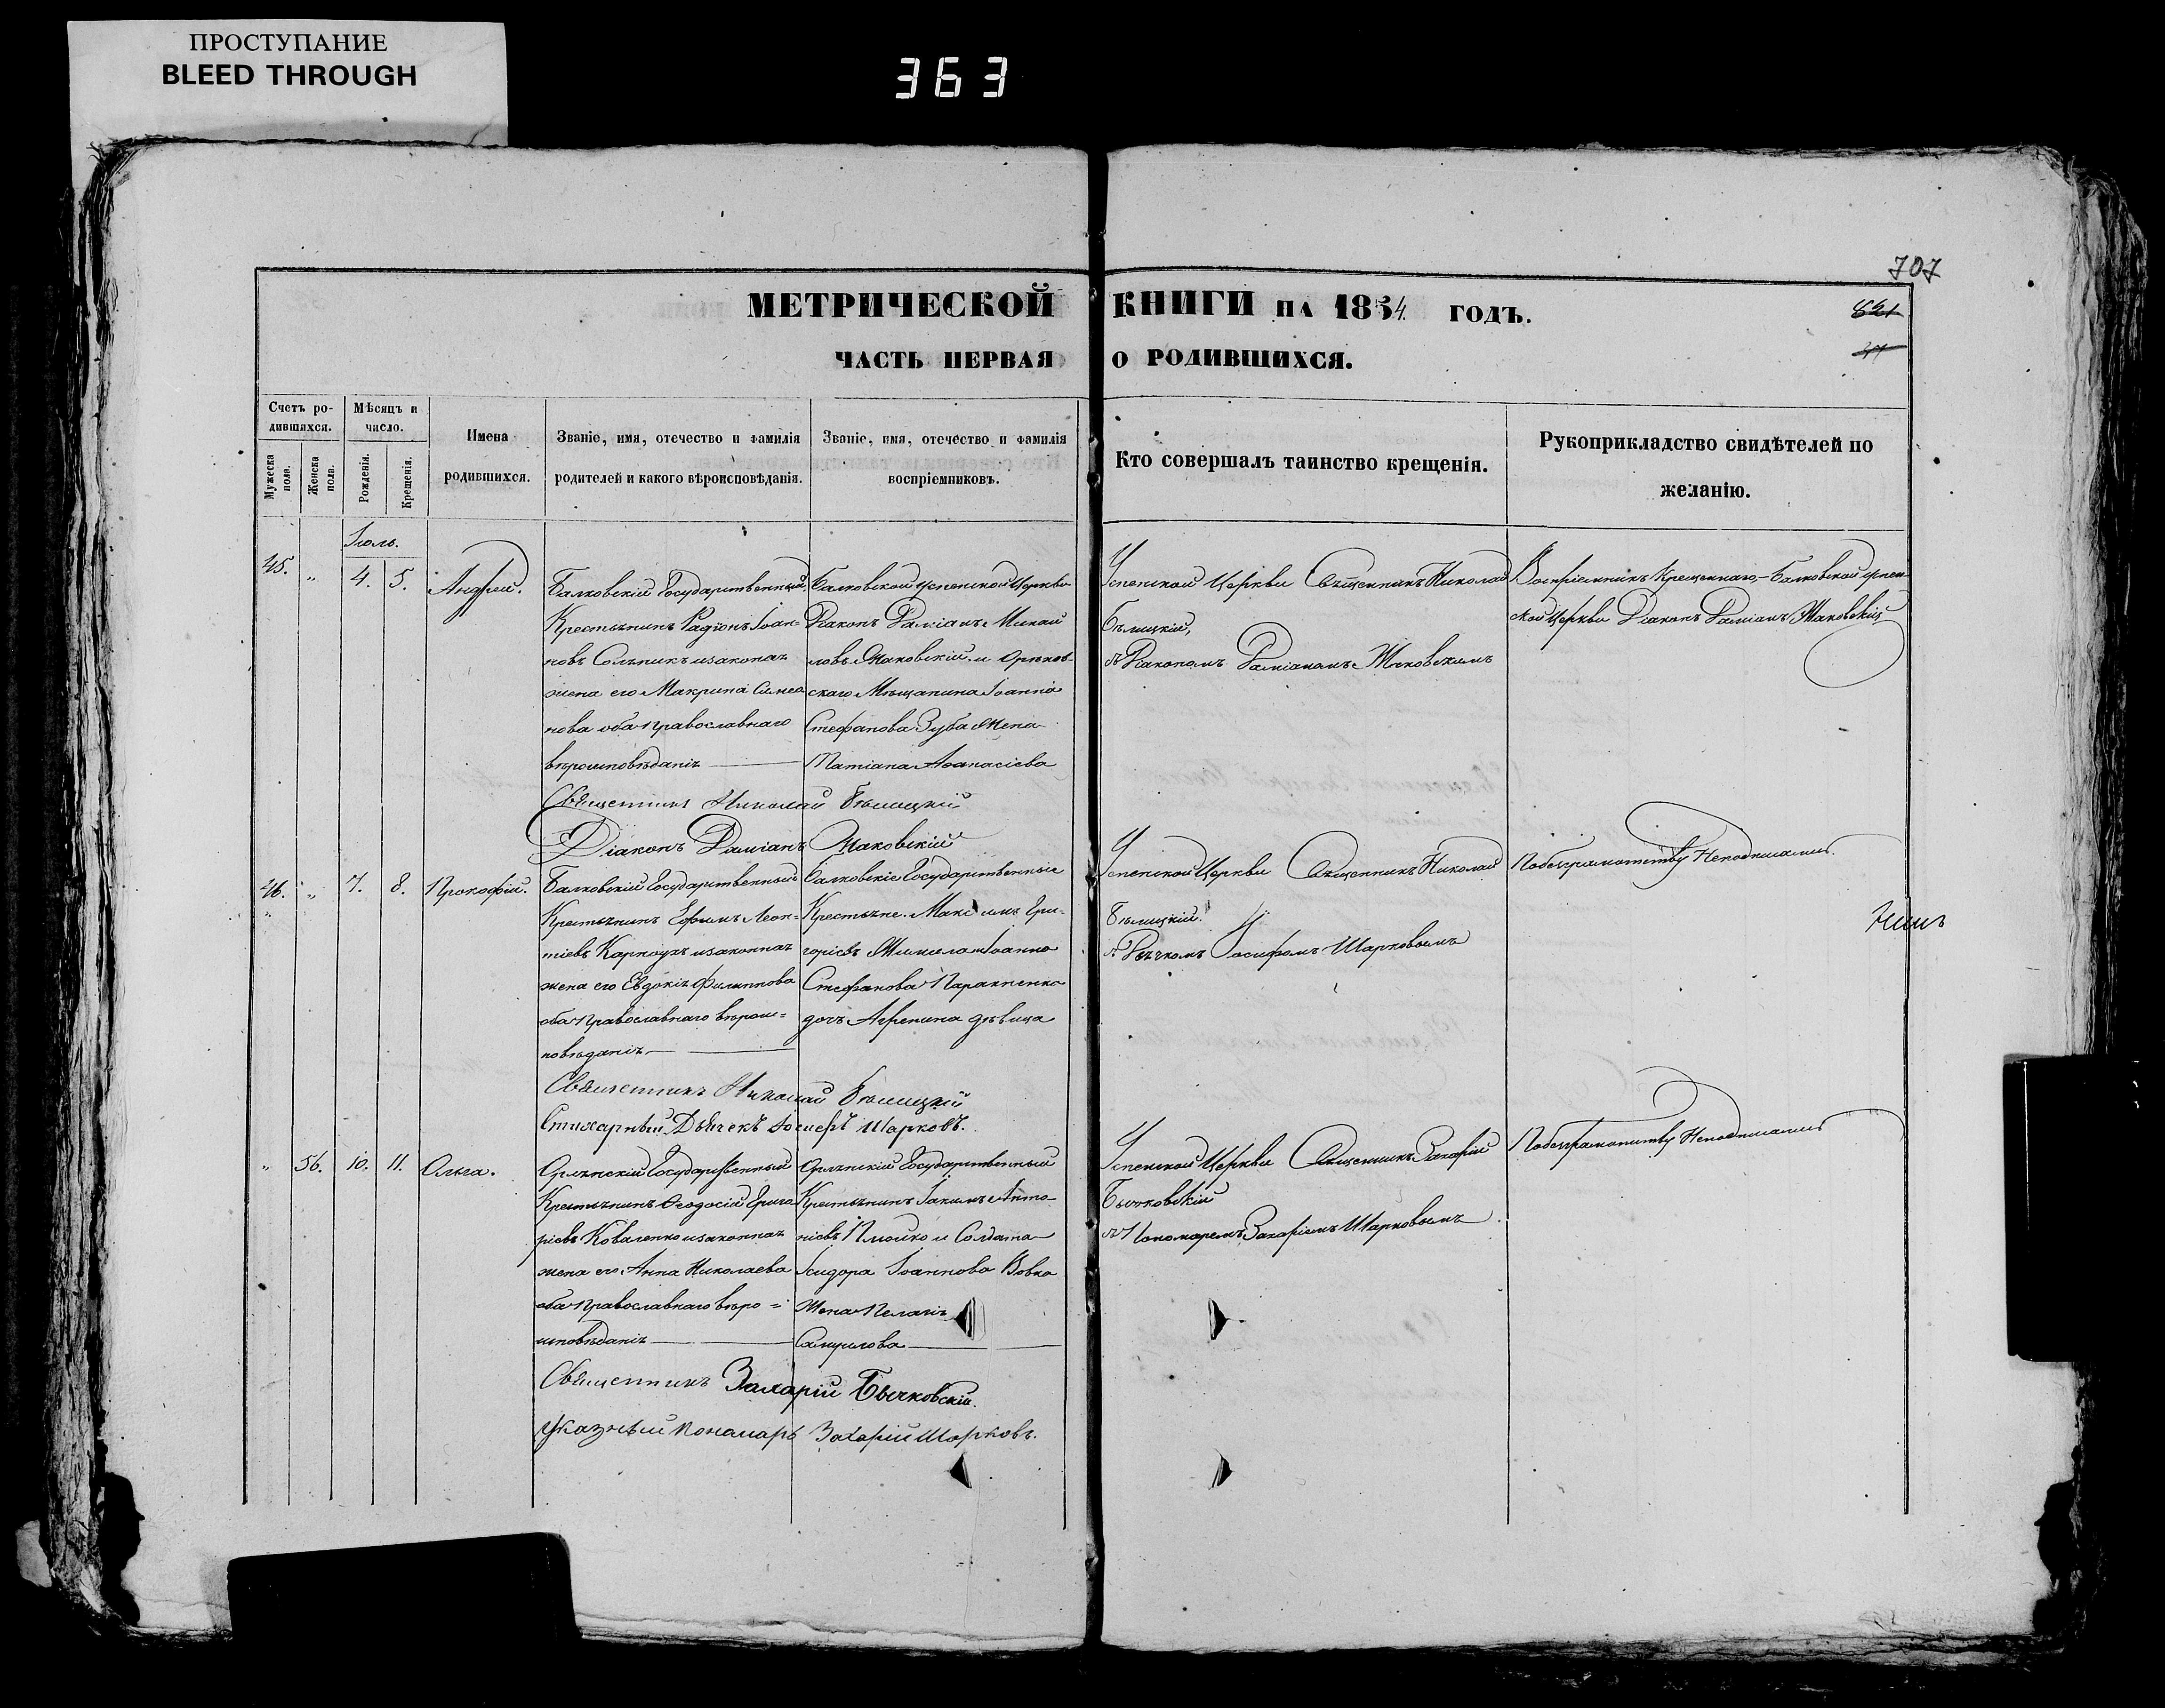 ПРОСТУПАНИЕ
BLEED THROUGH
363
707
МЕТРИЧЕСКОЙ КНИГИ НА 1854 ГОДЪ.
821
ЧАСТЬ ПЕРВАЯ О РОДИВШИХСЯ.
Счетъ родившихся.
Мужеска пола.
Женска пола.
Мѣсяцъ и число.
Рожденія.
Крещенія.
Имена родившихся.
Званіе, имя, отечество и фамилія родителей и какого вѣроисповѣданія.
Званіе, имя, отечество и фамилія воспріемниковъ.
Кто совершалъ таинство крещенія.
Рукоприкладство свидѣтелей по желанію.
Іюль.
45. " 4. 5. Андрей.
Балковскій Государственный
Крестьянинъ Радіонъ Іоан-
новъ Сольникъ изаконая
жена его Макрина Симео
нова оба православнаго
вѣроисповѣданія
Балковской Успенской Церкви
Діаконъ Даміанъ Михай
ловъ Маковскій и Орѣхов-
скаго Мѣщанина Іоанна
Стефанова Зуба жена
Татіана Аѳанасіева
Успенской Церкви Священникъ Николай
Бѣлицкій,
съ Діакономъ Даміаномъ Маковскимъ
Воспріемникъ Крещеннаго,-Балковской Успен
ской Церкви Діаконъ Даміанъ Маковскій
Священникъ Николай Бѣлицкій
Діаконъ Даміанъ Маковскій
46. " 7. 8. Прокофій.
Балковскій Государственный
Крестьянинъ Ефимъ Леон-
тіевъ Карпоухъ изаконная
жена его Евдокія Филиппова
оба православнаго вѣроис=
повѣданія
Балковскіе Государственные
Крестьяне. Максимъ Гри-
горіевъ и Іоанна
Стефанова
дочь Агрепина дѣвица
Успенской Церкви Священникъ Николай
Бѣлицкій.
съ Дьячкомъ Іосифомъ Шарковымъ
Побезграмотству Неподписались.
Священникъ Николай Бѣлицкій
Стихарный Дьячекъ Іосифъ Шарковъ.
" 56. 10. 11. Ольга.
Орлянскій Государственный
Крестьянинъ Ѳеодосій Григо
ріевъ Коваленко изаконная
жена его Анна Николаева
оба православнаго вѣро=
исповѣданія
Орлянскій Государственный
Крестьянинъ Іакимъ Анто-
ніевъ и Солдата
Исидора Іоаннова Вовка
жена Пелагія
Самуилова
Успенской Церкви Священникъ Захарій
Бычковскій
съ Пономаремъ Захаріемъ Шарковымъ.
Побезграмотству Неподписались
Священникъ Захарій Бычковскій.
Указный пономарь Захарій Шарковъ.